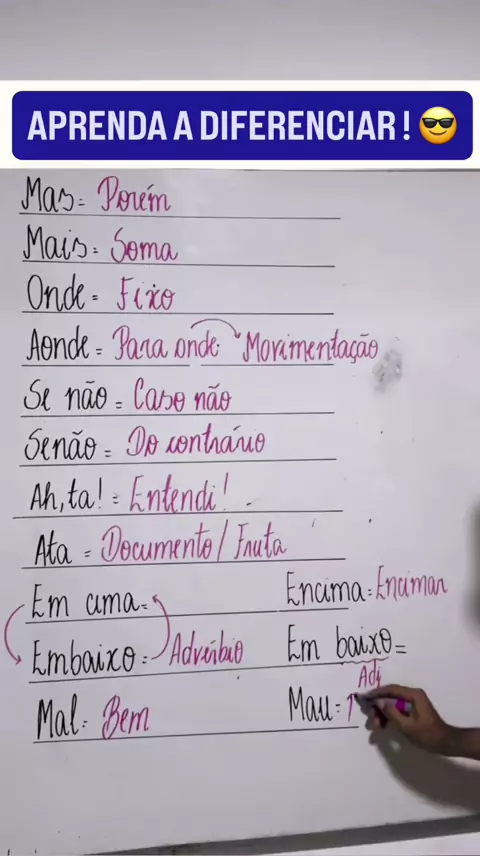 APRENDA A DIFERENCIAR ! 😎
Mas = Porém
Mais = Soma
Onde = Fixo
Aonde = Para onde Movimentação
Se não = Caso não
Senão = Do contrário
Ah, ta! = Entendi!
Ata = Documento / Fruta
Em cima = Encima = Encimar
Embaixo = Advérbio Em baixo =
Adj
Mal = Bem Mau =